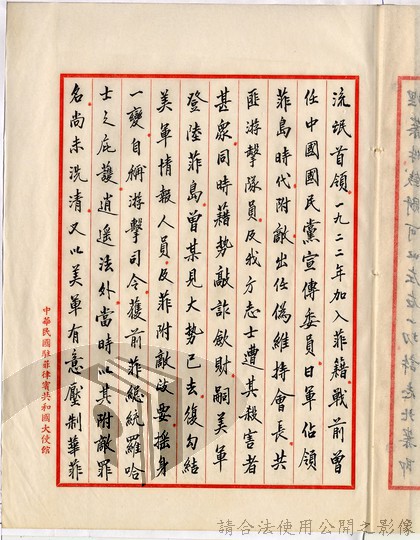 流氓首領一九二二年加入菲籍戰前曾
任中國國民黨宣傳委員日軍佔領
菲島時代附敵出任偽維持會長共
匪游擊隊員及我方志士遭其殺害者
甚衆同時藉勢敲詐歛財嗣美軍
登陸菲島曾某見大勢已去復勾結
美軍情報人員及菲附敵政要搖身
一變自稱游擊司令獲前菲總統羅哈
士之庇護逍遙法外當時以其附敵罪
名尚未洗清又以美軍有意壓制華菲
中華民國駐菲律賓共和國大使館
請合法使用公開之影像